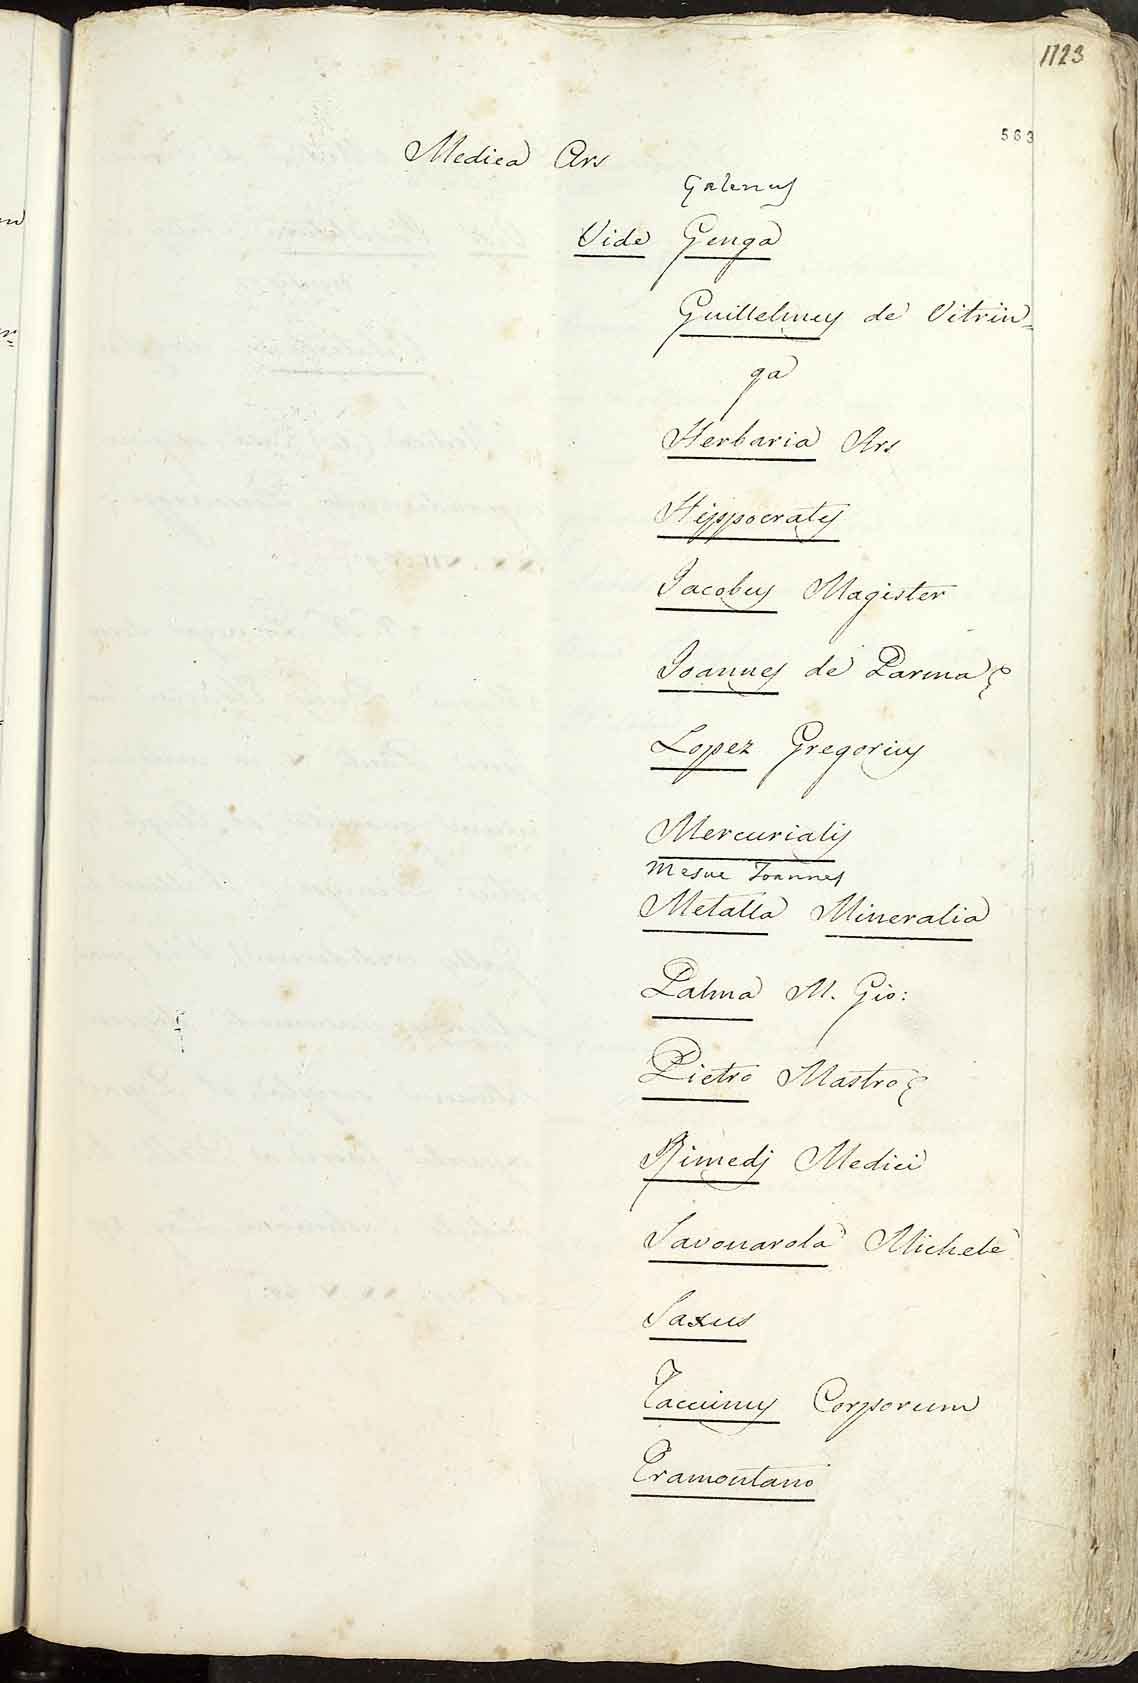 1123
563
Medica Ars
Galenus
Vide Genga
Guillelmus de Vitrin=
ga
Herbaria Ars
Hippocrates
Jacobus Magister
Joannes de Parma
Lopez Gregorius
Mercurialis
Mesue Joannes
Metalla Mineralia
Palma M. Gio:
Pietro Mastro
Rimedj Medici
Savonarola Michele
Saxus
Taccuinus Corporum
Tramontano